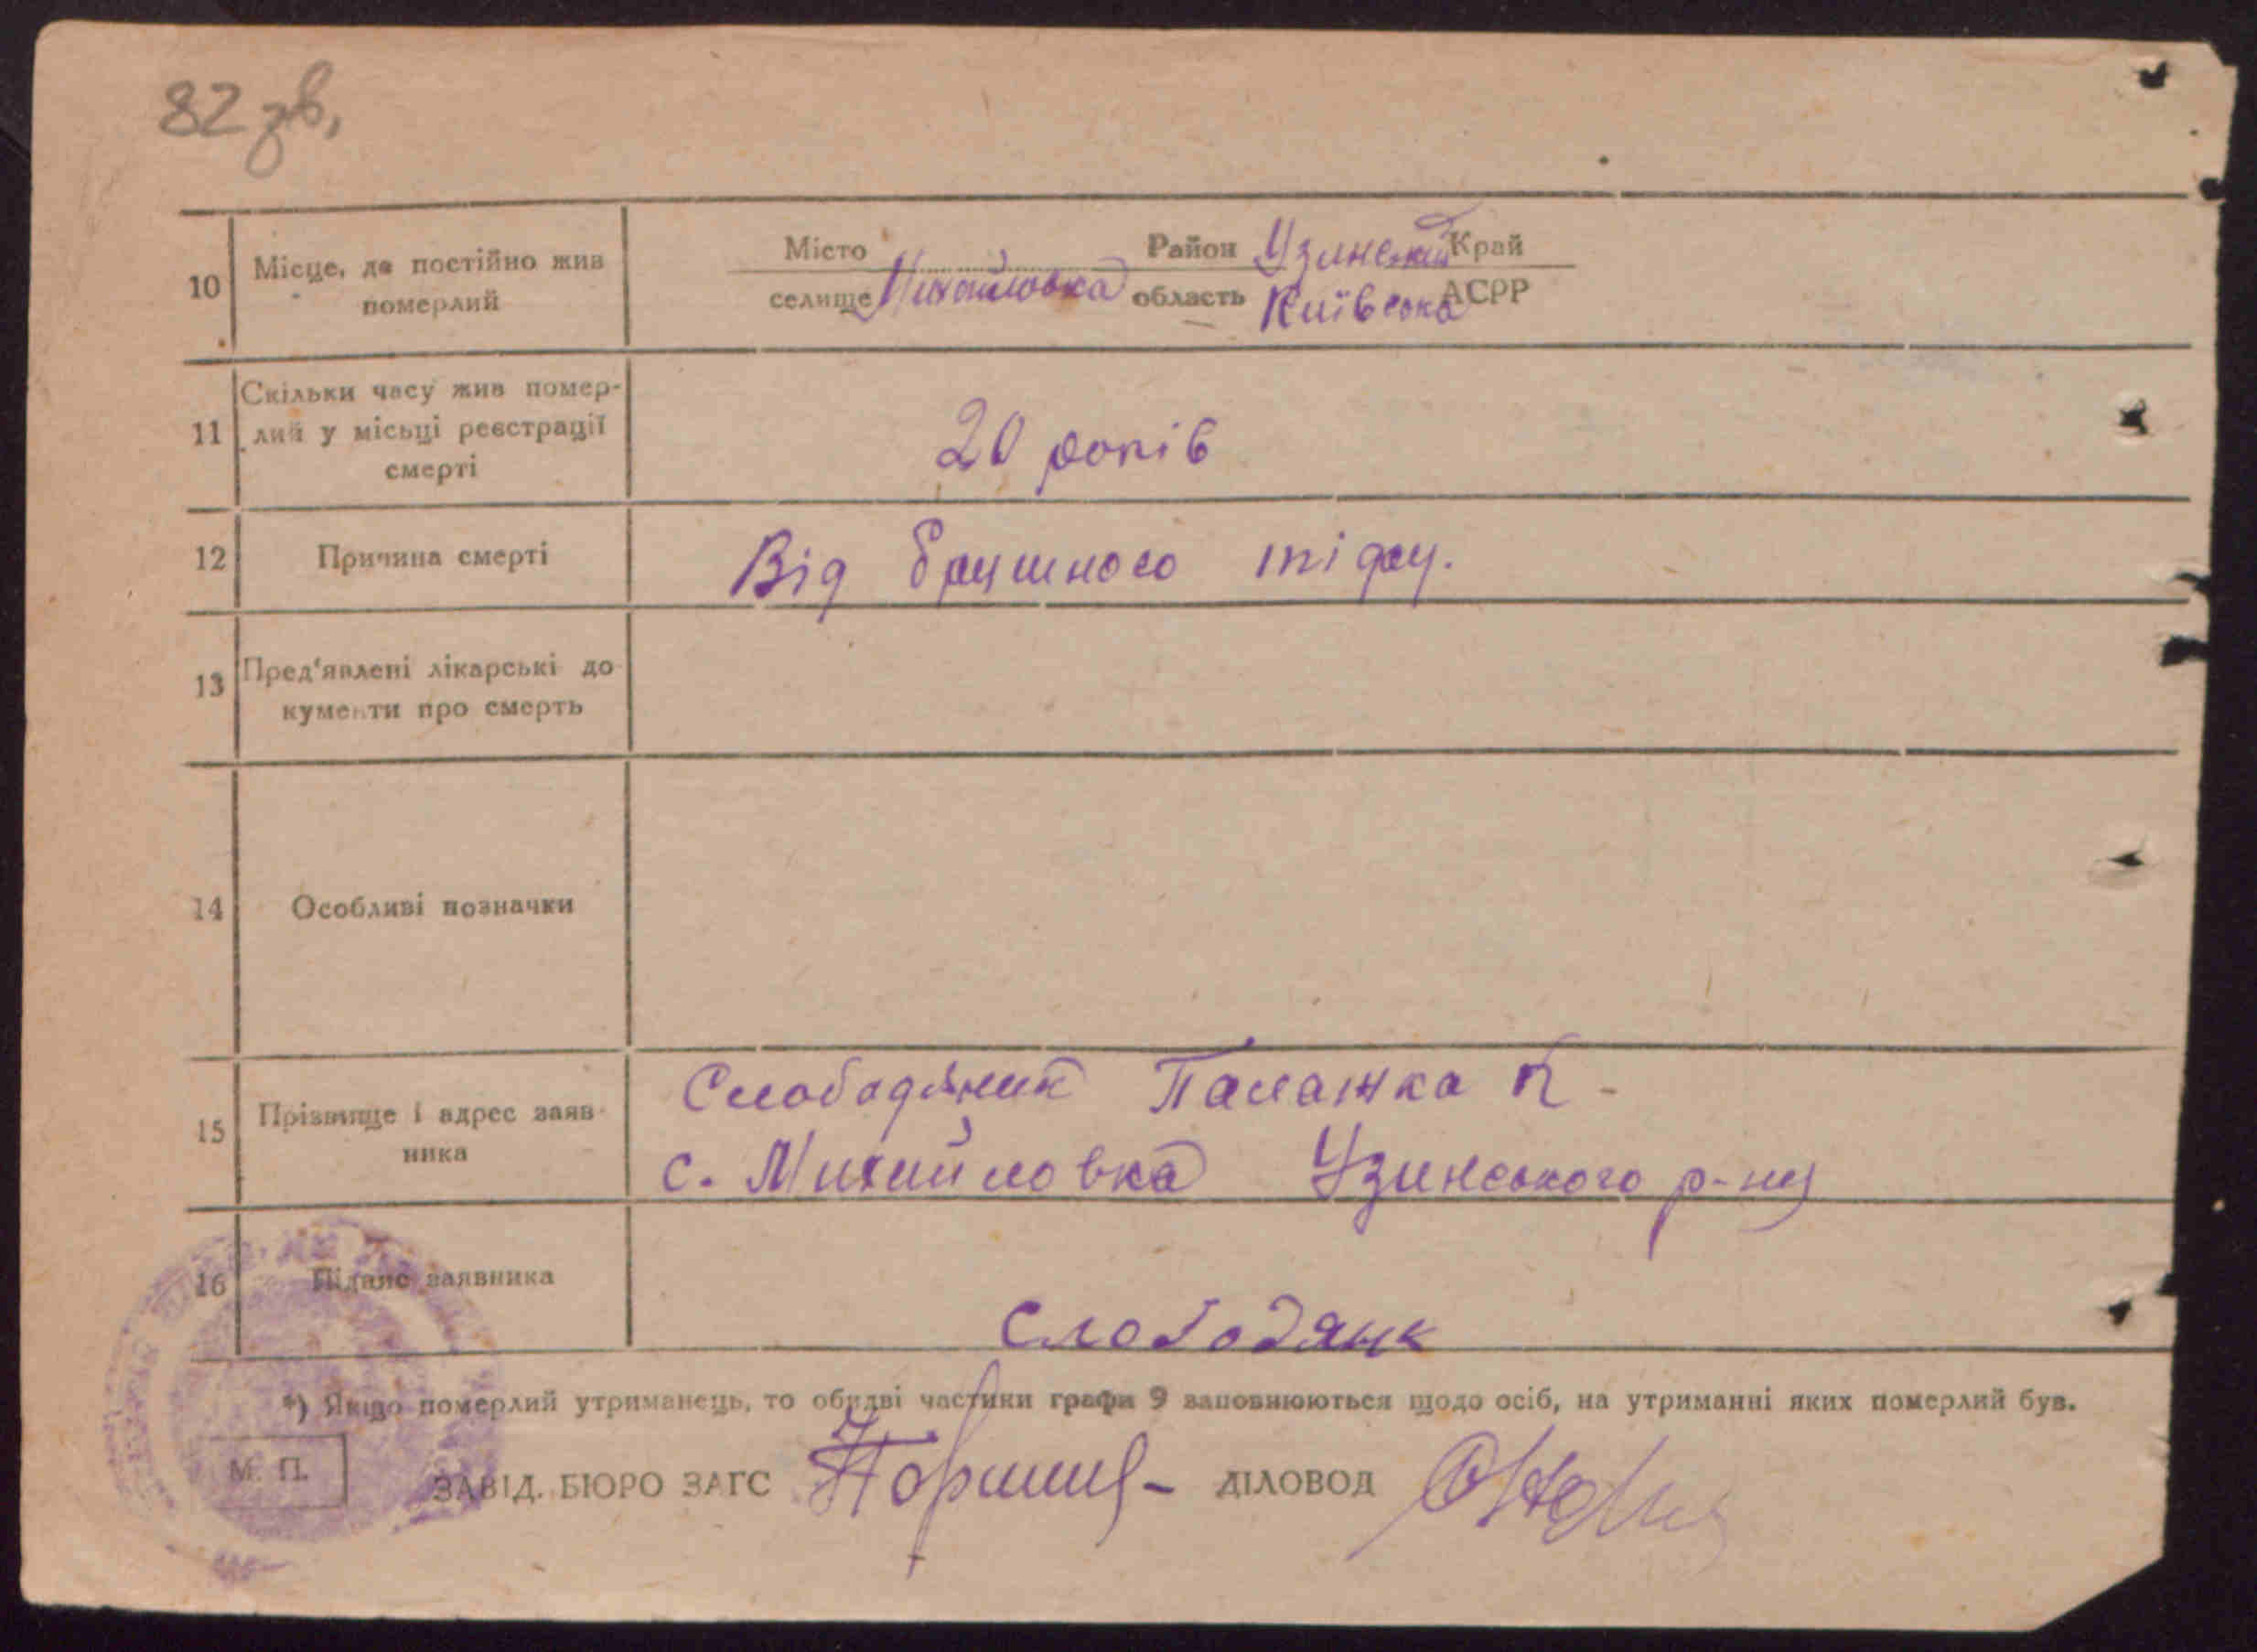 82 зв.
10 Місце, де постійно жив померлий
Місто Район Узинський Край
селище Михайловка область Київська АСРР
11 Скільки часу жив помер-
лий у місьці реєстрації
смерті
20 років
12 Причина смерті Від брушного тіфу.
13 Пред'явлені лікарські до-
кументи про смерть
14 Особливі позначки
15 Прізвище і адрес заяв-
ника
Слободяник Палажка К -
с. Михайловка Узинського р-ну
16 Підпис заявника
Слободянк
*) Якщо померлий утриманець, то обидві частини графи 9 заповнюються щодо осіб, на утриманні яких померлий був.
М. П.
ЗАВІД. БЮРО ЗАГС ДІЛОВОД